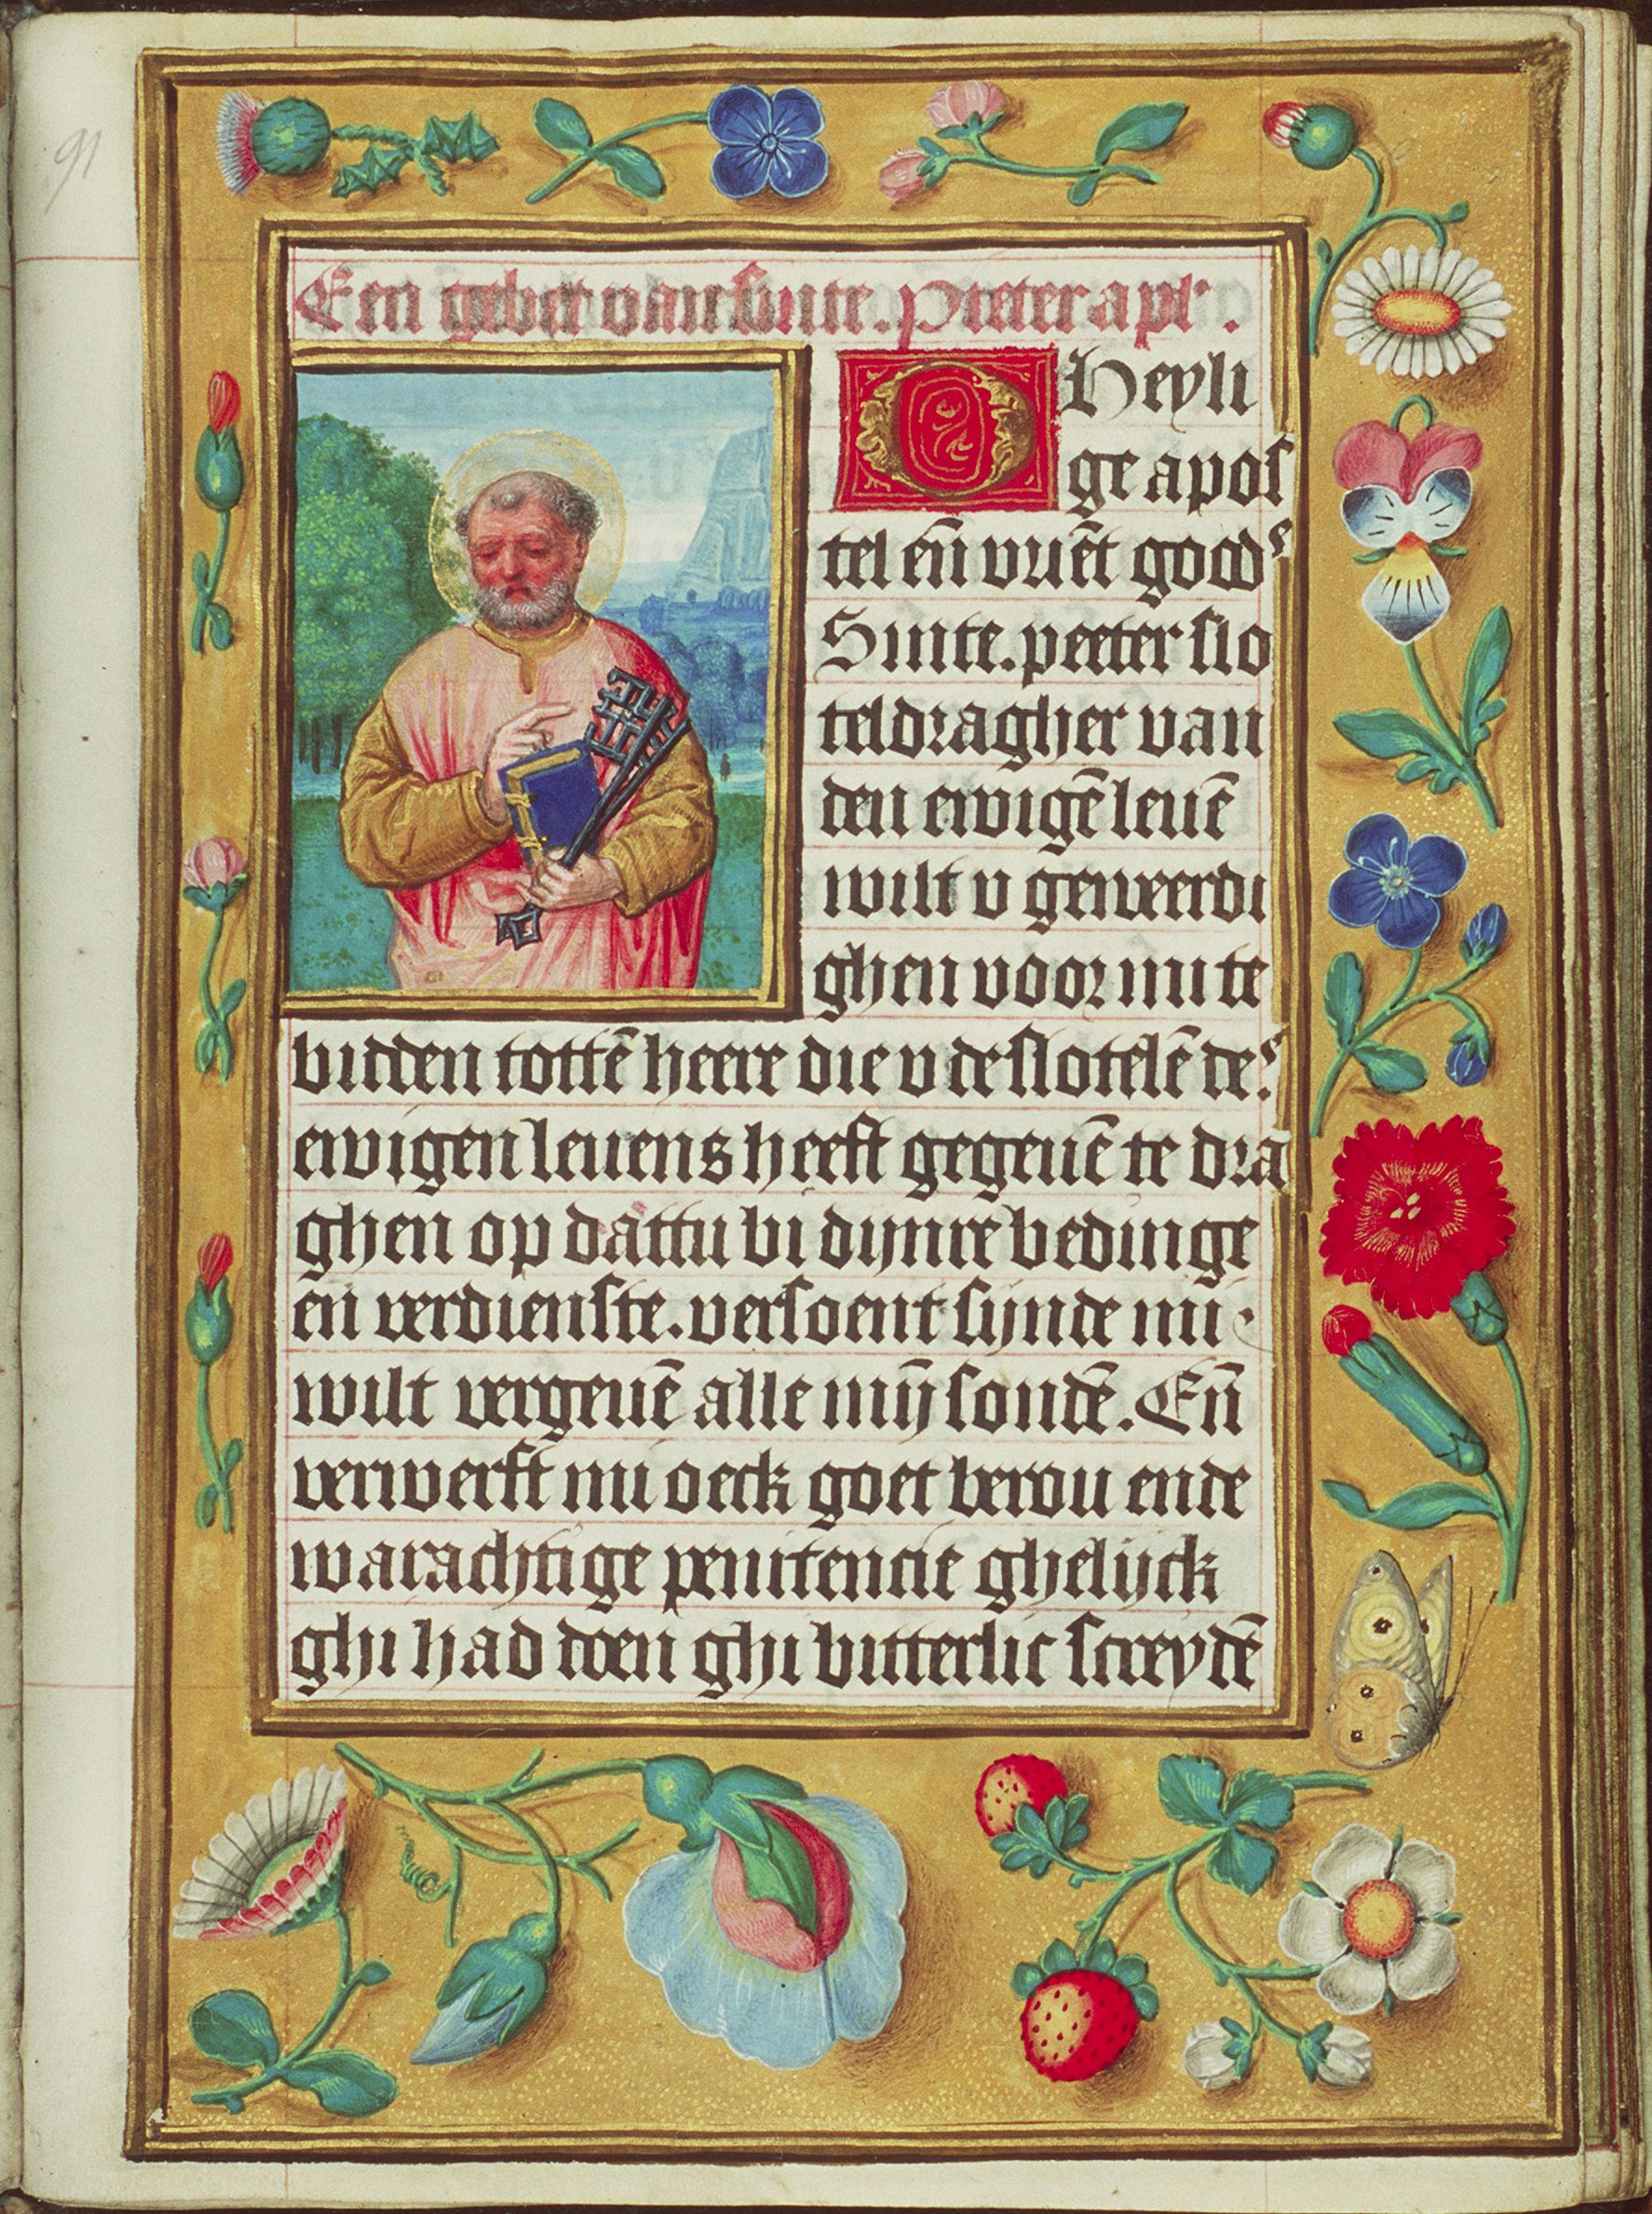 91
Een gebet van sinte. Pieter apl.
O Heyli
ge apos
tel eñ vriēt gods
Sinte. peeter slo
teldragher van
den ewigē leuē
wilt v geweerdi
ghen voor mi te
bidden tottē heere die v de slotelē des
ewigen leuens heeft gegeuē te dra
ghen op dattu bi dijnre bedinge
eñ verdienste. versoent sijnde mi
wilt vergeuē alle mijn sondē. Eñ
verwerft mi oeck goet berou ende
warachtige penitencie ghelijck
ghi had doen ghi bitterlic screydē